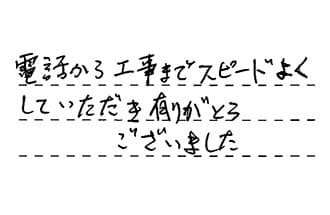 電話から工事までスピードよく
していただき有りがとう
ございました